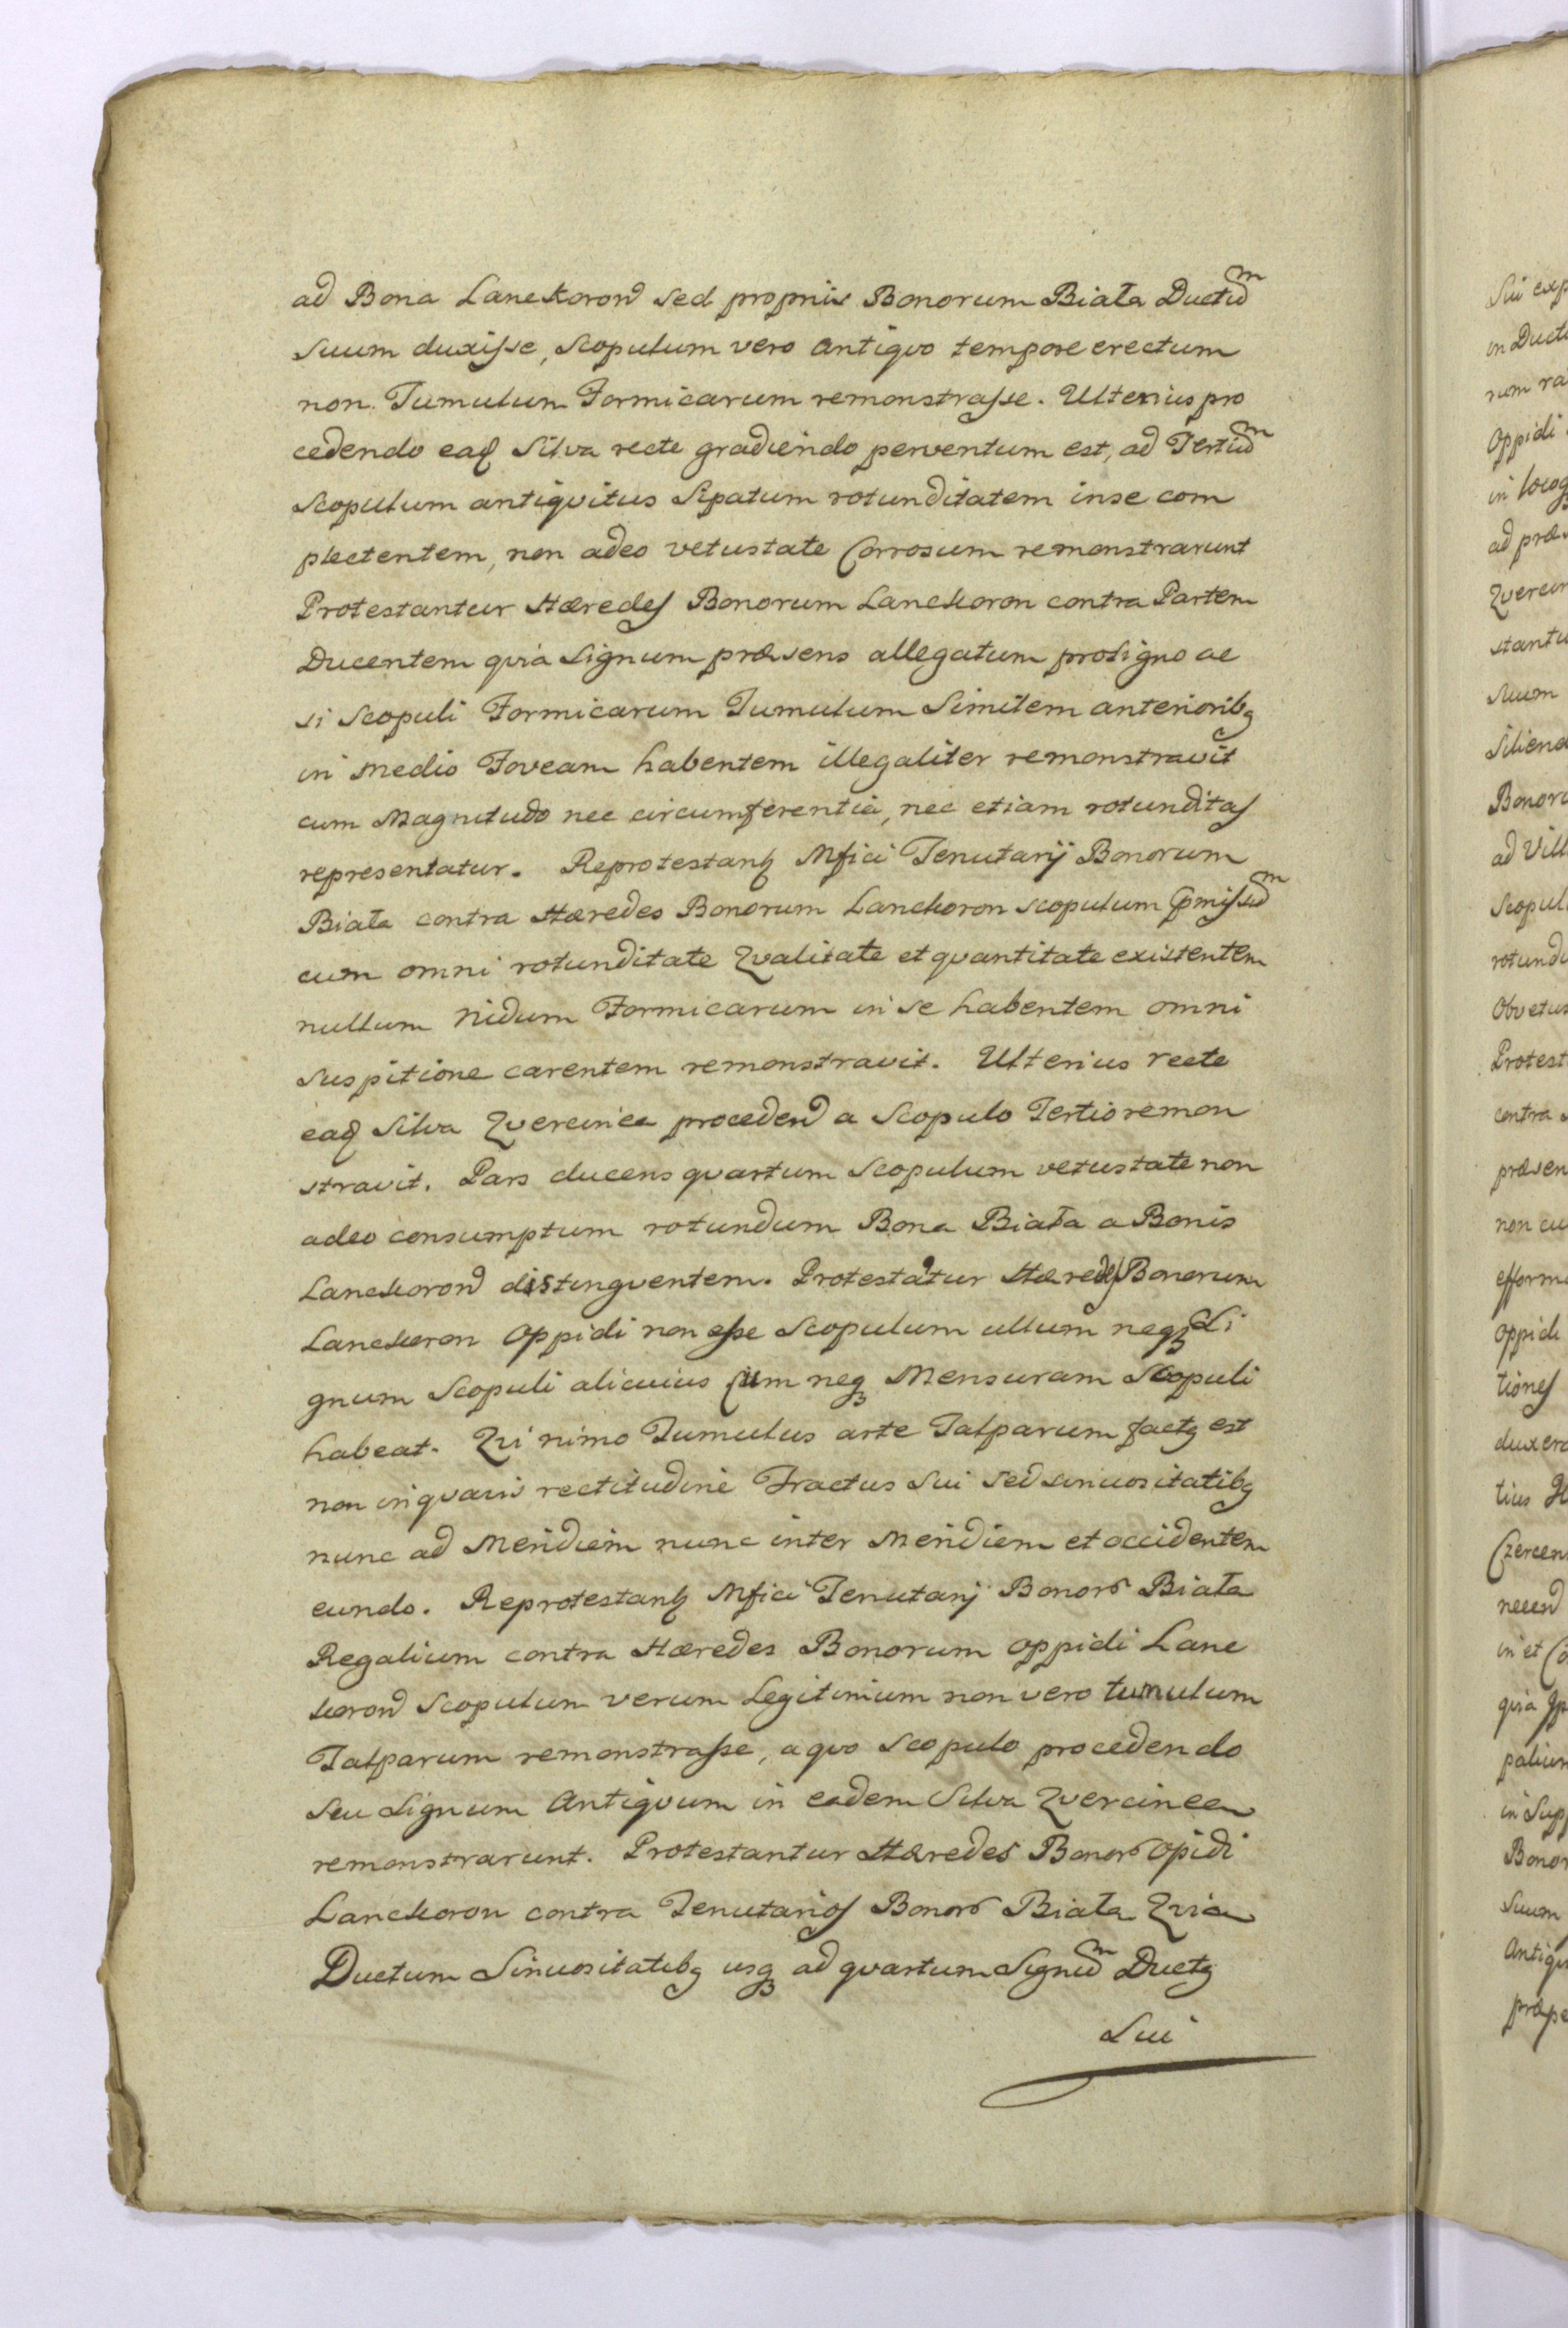 ad Bona Lanckoron sed propriis Bonorum Biała Ductum
suum duxisse, Scopulum vero Antiqvo tempore erectum
non Tumulum Formicarum remonstrasse. Ulterius pro
cedendo eaq Silva recte gradiendo perventum est, ad Tertium
Scopulum antiqvitus Sipatum rotunditatem in se com
plectentem, non adeo vetustate Corrosum remonstrarunt
Protestantur Hæredes Bonorum Lanckoron contra Partem
Ducentem qvia Signum præsens allegatum pro Signo ac
si Scopuli Formicarum Tumulum Similem anterioribq
in Medio Foveam habentem illegaliter remonstravit
cum Magnitudo nec circumferentia, nec etiam rotunditas
representatur. Reprotestantq Mfici Tenutarij Bonorum
Biała contra Hæredes Bonorum Lanckoron Scopulum Pmissum
cum omni rotunditate Qvalitate et qvantitate existentem
nullum Nidum Formicarum in se habentem omni
Suspitione carentem remonstravit. Ulterius recte
eaq Silva Qvercinea procedend a Scopulo Tertio remon
stravit. Pars ducens qvartum Scopulum vetustate non
adeo consumptum rotundum Bona Biała a Bonis
Lanckoron distingventem. Protestantur Hæredes Bonorum
Lanckoron Oppidi non esse Scopulum ullum neqz Si
gnum Scopuli alicuius Cum neqz Mensuram Scopuli
habeat. Qvi nimo Tumulus arte Talparum factq est
non in qvavis rectitudine Tractus Sui Sed Sinuositatibq
nunc ad Meridiem nunc inter Meridiem et occidentem
eundo. Reprotestantq Mfici Tenutarij Bonor Biała
Regalium contra Hæredes Bonorum Oppidi Lanc
koron Scopulum verum Legitimum non vero tumulum
Talparum remonstrasse, a qvo Scopulo procedendo
Seu Signum Antiqvum in eadem Silva Qvercinea
remonstrarunt. Protestantur Hæredes Bonor Opidi
Lanckoron contra Tenutarios Bonor Biała Qvia
Ductum Sinuositatibq usqz ad qvartum Signum Ductq
Sui